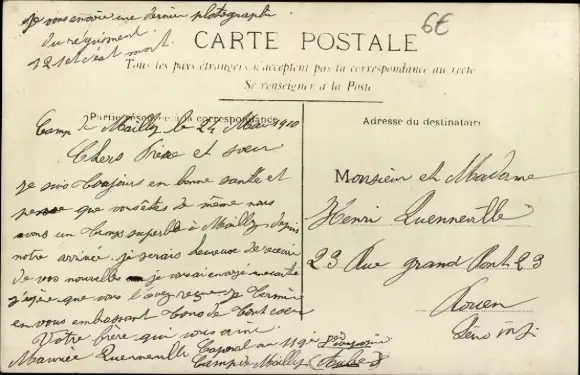 Je vous envoie une dernier photographi
du régiment.
12 et c'est mort.
6€
CARTE POSTALE
Tous les pays étrangers n'acceptent pas la correspondance au recto
Se renseigner à la Poste
Partie réservée à la correspondance
Adresse du destinataire
Camp de Mailly le 24 Mai 1910
Chers Frère et sœur
Je suis toujours en bonne santée et
pense que vous êtes de même nous
avons un temps superbe à Mailly depuis
notre arrivée je serais heureuse de recevoir
de vos nouvelles je vous ai envoyé une carte
j'espère que vous l'avez reçue je termine
en vous embrassant tous de tout cœur
Votre frère qui vous aime
Maurice Quenneville Caporal au 119e
Camp de Mailly (Aube)
Monsieur et Madame
Henri Quenneville
23 Rue grand Pont 23
Rouen
Seine inf